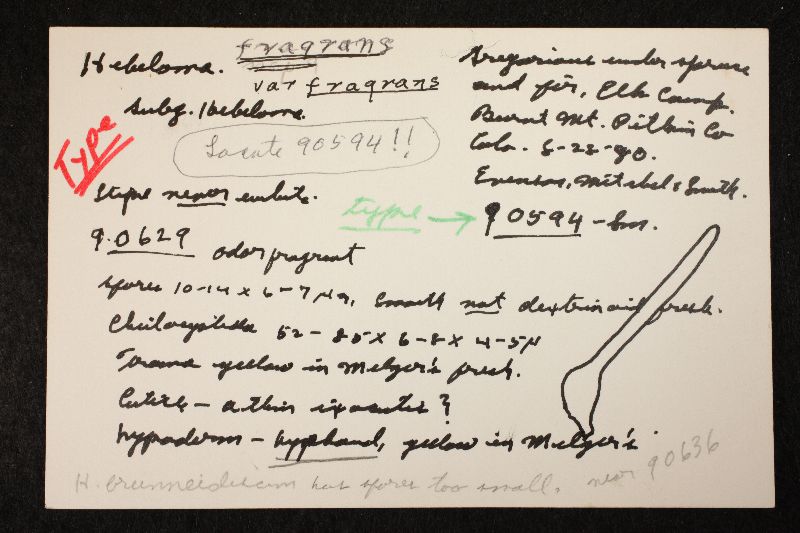 Hebeloma. fragrans
var fragrans
Subg. Hebeloma.
Type
Locate 90594!!
Gregarious under spruce
and fir, Elk Camp.
Burnt Mt. Pitkin Co
Colo. 8-22-80.
Evenson, Mitchel & Smith.
type → 90594 - Sm.
Stipe never evelate.
90629 odor fragrant
spores 10-14 x 6-7 μm, smooth not dextrinoid fresh.
Cheilocystidia 52-85 x 6-8 x 4-5 μ
Trama yellow in Melzer's fresh.
Cuticle - a thin ixocutis?
hypoderm - hyphoid, yellow in Melzer's
H. brunneidiscum has spores too small. near 90636